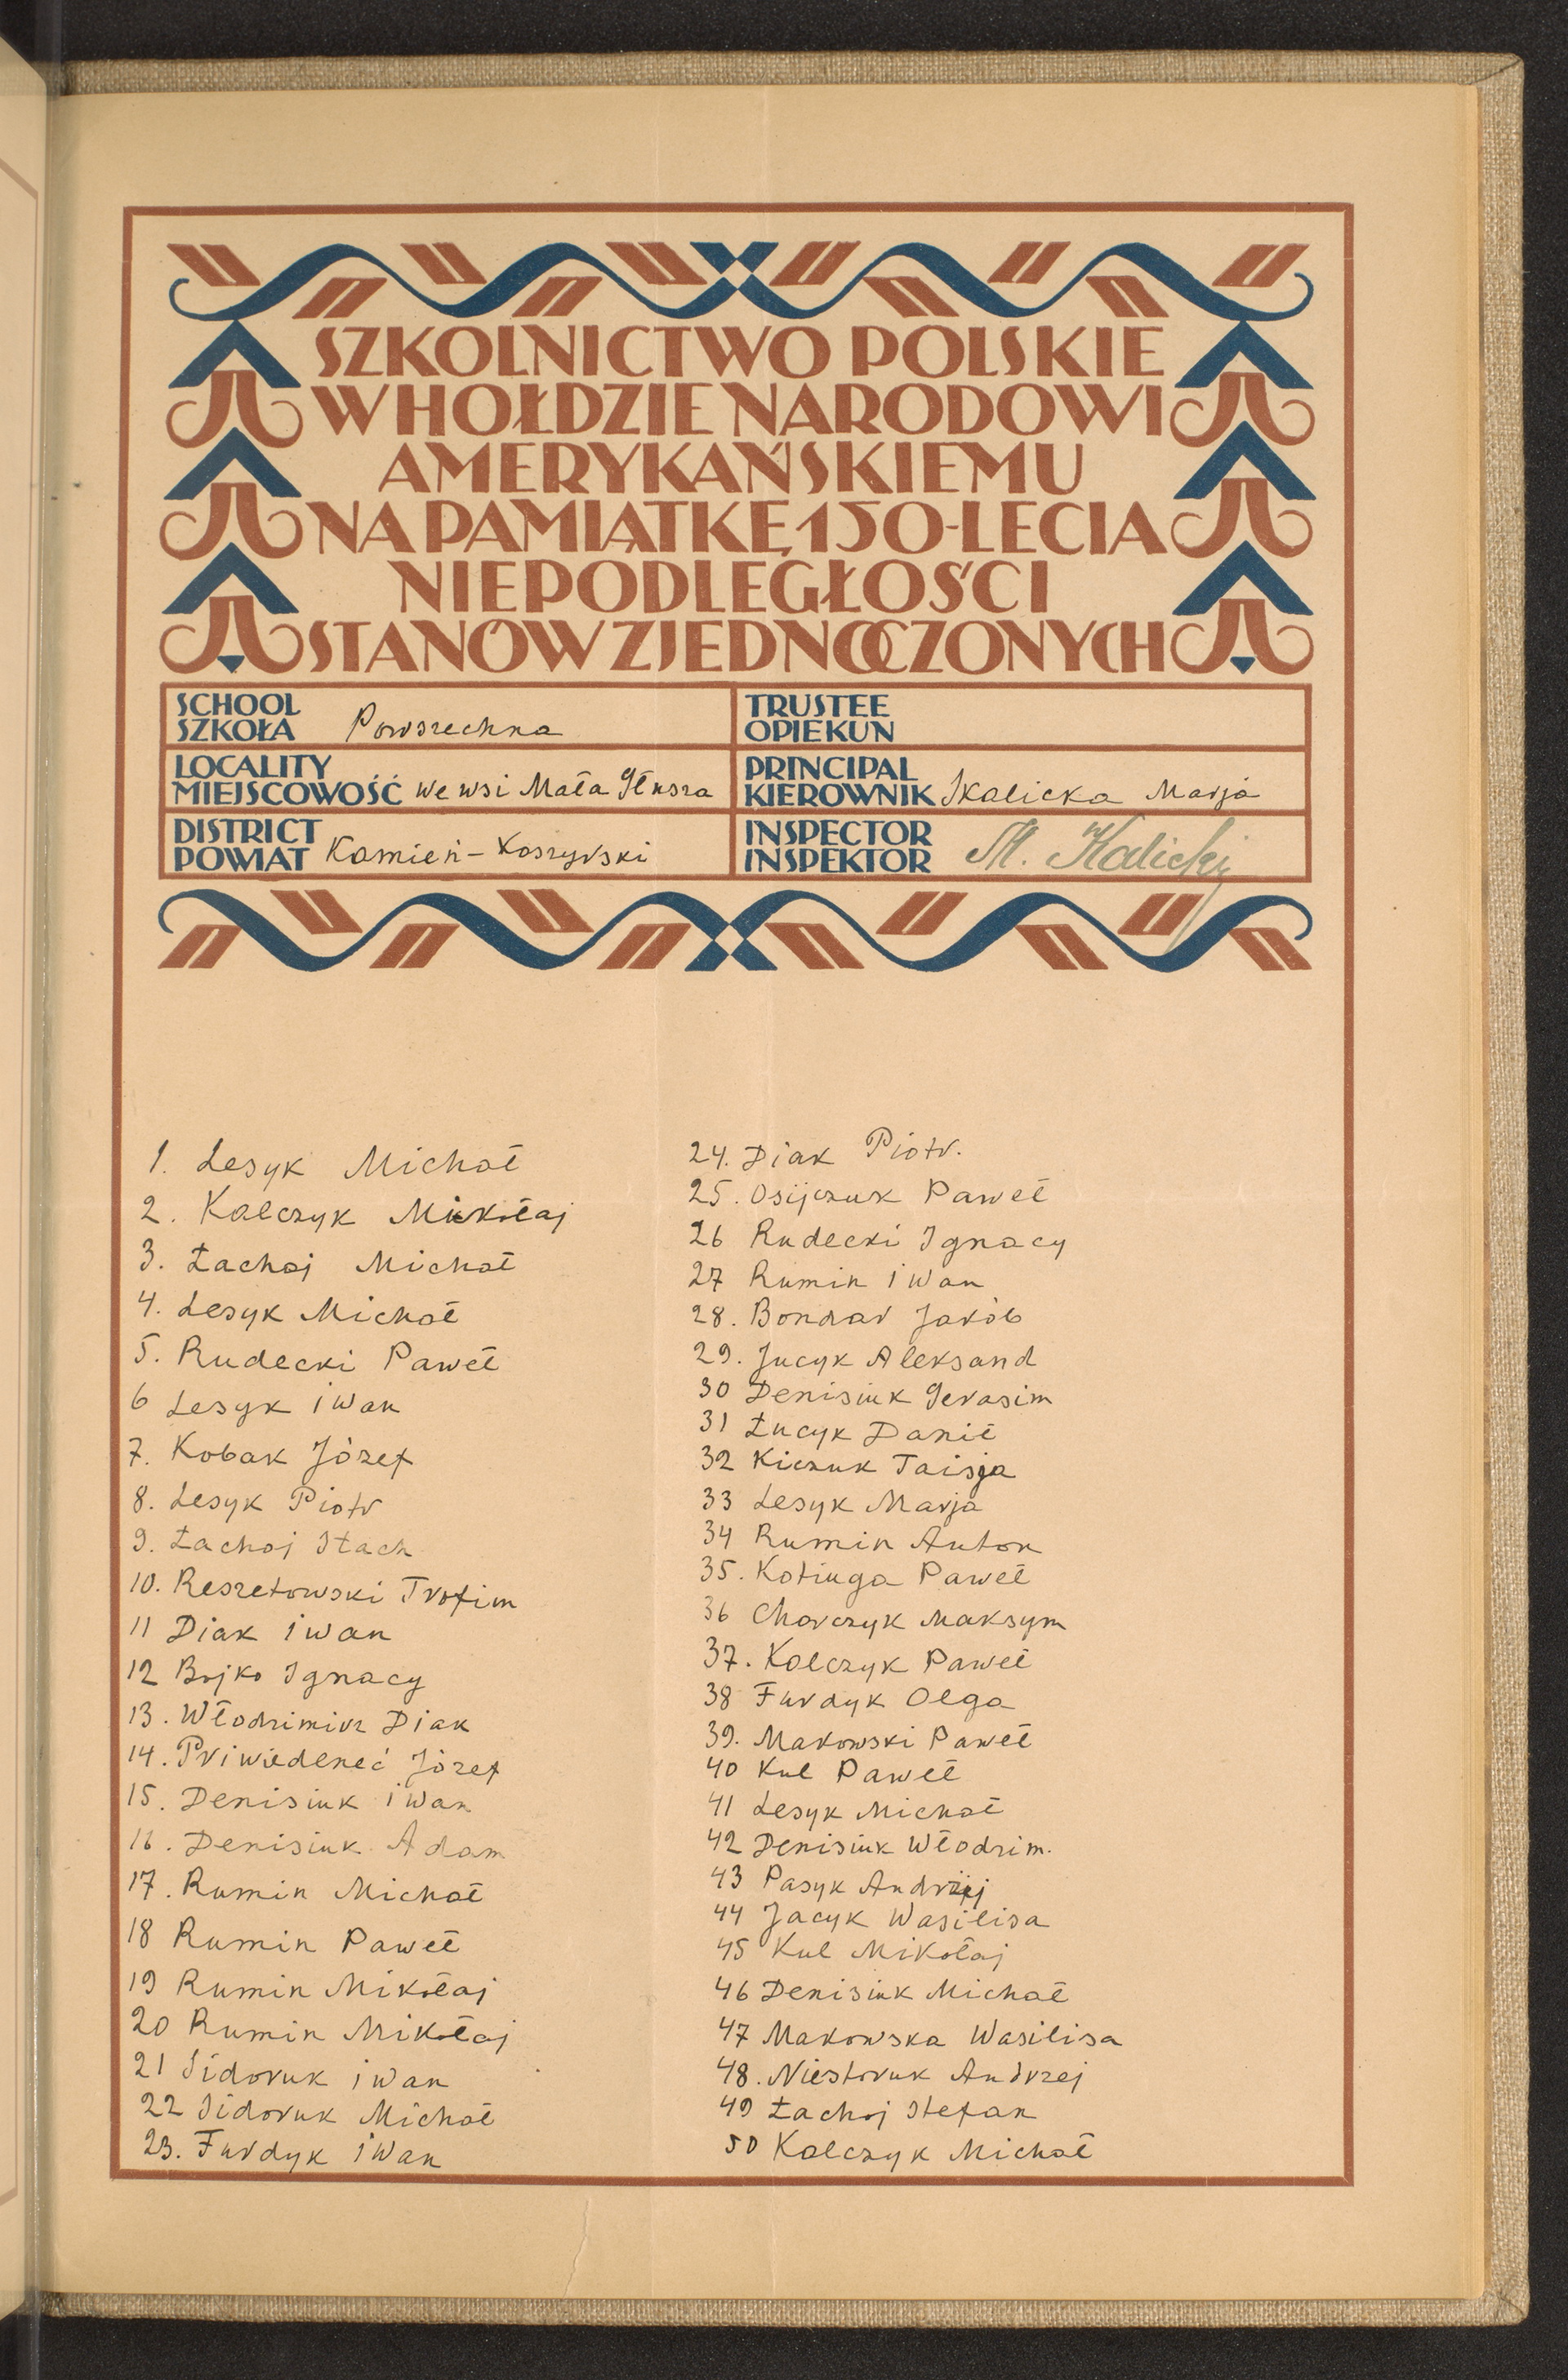 SZKOLNICTWO POLSKIE
W HOŁDZIE NARODOWI
AMERYKAŃSKIEMU
NA PAMIĄTKĘ 150-LECIA
NIEPODLEGŁOŚCI
STANÓW ZJEDNOCZONYCH
SCHOOL
SZKOŁA Powszechna
TRUSTEE
OPIEKUN
LOCALITY
MIEJSCOWOŚĆ we wsi Mała Głusza
PRINCIPAL
KIEROWNIK Skalicka Marja
DISTRICT
POWIAT Kamień-Koszyrski
INSPECTOR
INSPEKTOR M. Kalicki
1. Lesyk Michał
2. Kalczyk Mikołaj
3. Łachaj Michał
4. Lesyk Michał
5. Rudecki Paweł
6 Lesyk iwan
7. Kobak Józef
8. Lesyk Piotr
9. Łachoj Stach
10. Reszetowski Trofim
11 Diak iwan
12 Bojko Ignacy
13. Włodzimirz Diak
14. Priwiedeneć Józef
15. Denisiuk iwan
16. Denisiuk Adam
17. Rumin Michał
18 Rumin Paweł
19 Rumin Mikołaj
20 Rumin Mikołaj
21 Sidoruk iwan
22 Sidoruk Michał
23. Furdyk iwan
24. Diak Piotr.
25. Osijczuk Paweł
26 Rudecki Ignacy
27 Rumin iwan
28. Bondar Jakób
29. Jucyk Aleksand
30 Denisiuk Gerasim
31 Łucyk Danił
32 Kiczuk Taisja
33 Lesyk Marja
34 Rumin Anton
35. Kotiuga Paweł
36 Chorczyk Maksym
37. Kolczyk Paweł
38 Furdyk Olga
39. Makowski Paweł
40 Kul Paweł
41 Lesyk Michał
42 Denisiuk Włodzim.
43 Pasyk Andrzej
44 Jacyk Wasilisa
45 Kul Mikołaj
46 Denisiuk Michał
47 Makowska Wasilisa
48. Niestoruk Andrzej
49 Łachoj Stefan
50 Kalczyk Michał